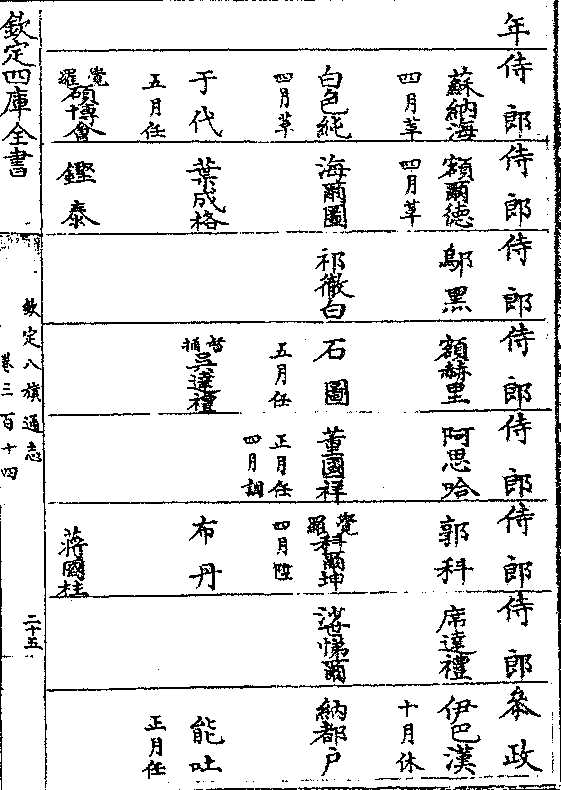 年侍郎侍郎侍郎侍郎侍郎侍郎侍郎叅政
蘇納海
四月革
額爾德
四月革
鄔黑
額赫里
阿思哈
郭科
席達禮
伊巴漢
十月休
白色純
四月革
海爾圖
祁徹白
石圖
五月任
董國祥
正月任
四月調
覺羅科爾坤
四月陞
悌爾
納都戶
于代
五月任
葉成格
暫補吳達禮
布丹
能吐
正月任
覺羅碩博會
鏗泰
蔣國柱
欽定四庫全書
欽定八旗通志
卷三百十四
二十五